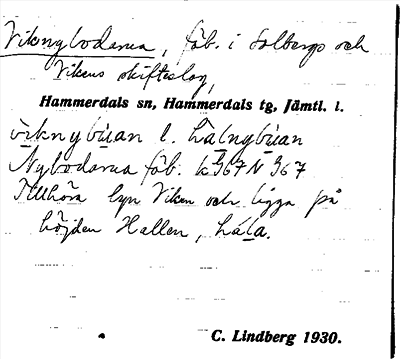 Viknybodarna, fäb. i Solbergs och
Vikens skifteslag,
Hammerdals sn, Hammerdals tg, Jämtl. l.
vıknybùan l. halnybùan
Nybodarna fäb. k 367 N 367
Tillhöra byn Viken och ligga på
höjden Hallen, hála.
C. Lindberg 1930.